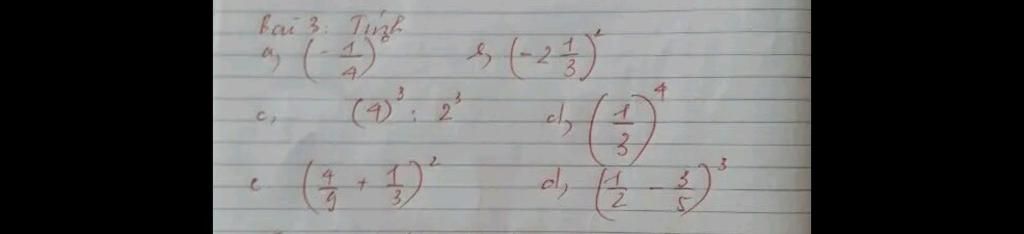 Bài 3: Tính
a, (-1/4)⁰ b, (-2 1/3)²
c, (4)³ : 2³ d, (1/3)⁴
e (4/9 + 1/3)² d, (1/2 - 3/5)³